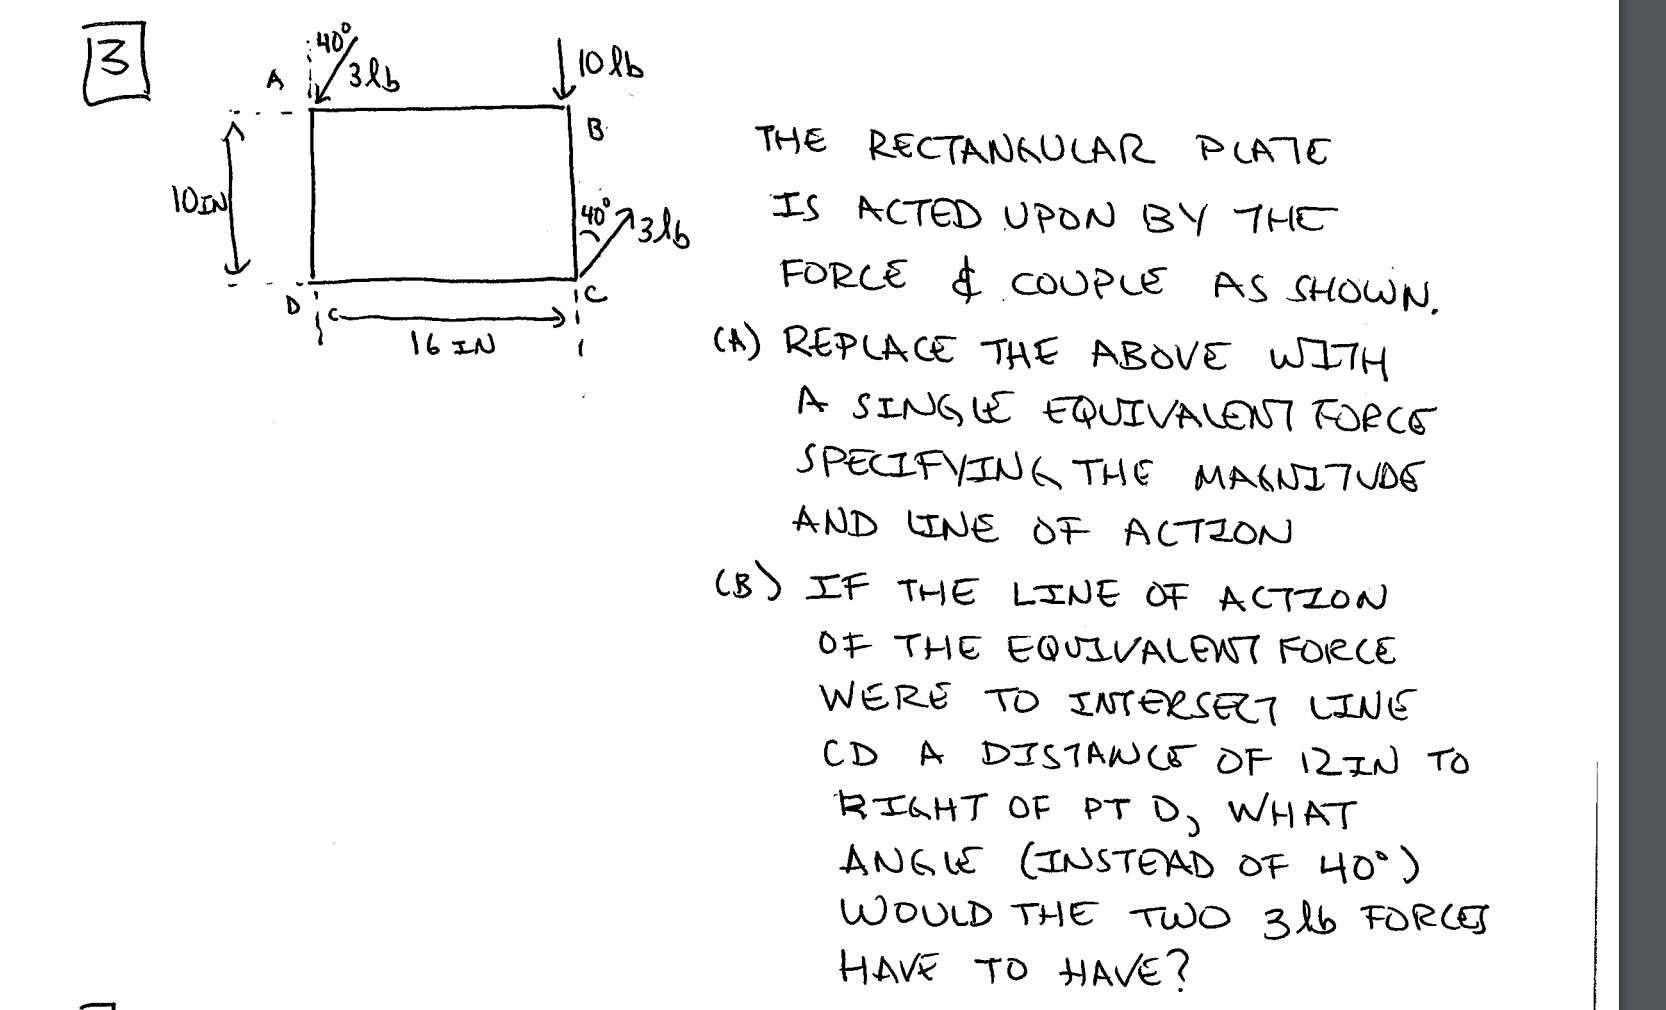 3
40°
3 lb
10 lb
A
B
10 IN
40°
3 lb
D
C
16 IN
THE RECTANGULAR PLATE
IS ACTED UPON BY THE
FORCE & COUPLE AS SHOWN.
(A) REPLACE THE ABOVE WITH
A SINGLE EQUIVALENT FORCE
SPECIFYING THE MAGNITUDE
AND LINE OF ACTION
(B) IF THE LINE OF ACTION
OF THE EQUIVALENT FORCE
WERE TO INTERSECT LINE
CD A DISTANCE OF 12 IN TO
RIGHT OF PT D, WHAT
ANGLE (INSTEAD OF 40°)
WOULD THE TWO 3 lb FORCES
HAVE TO HAVE?